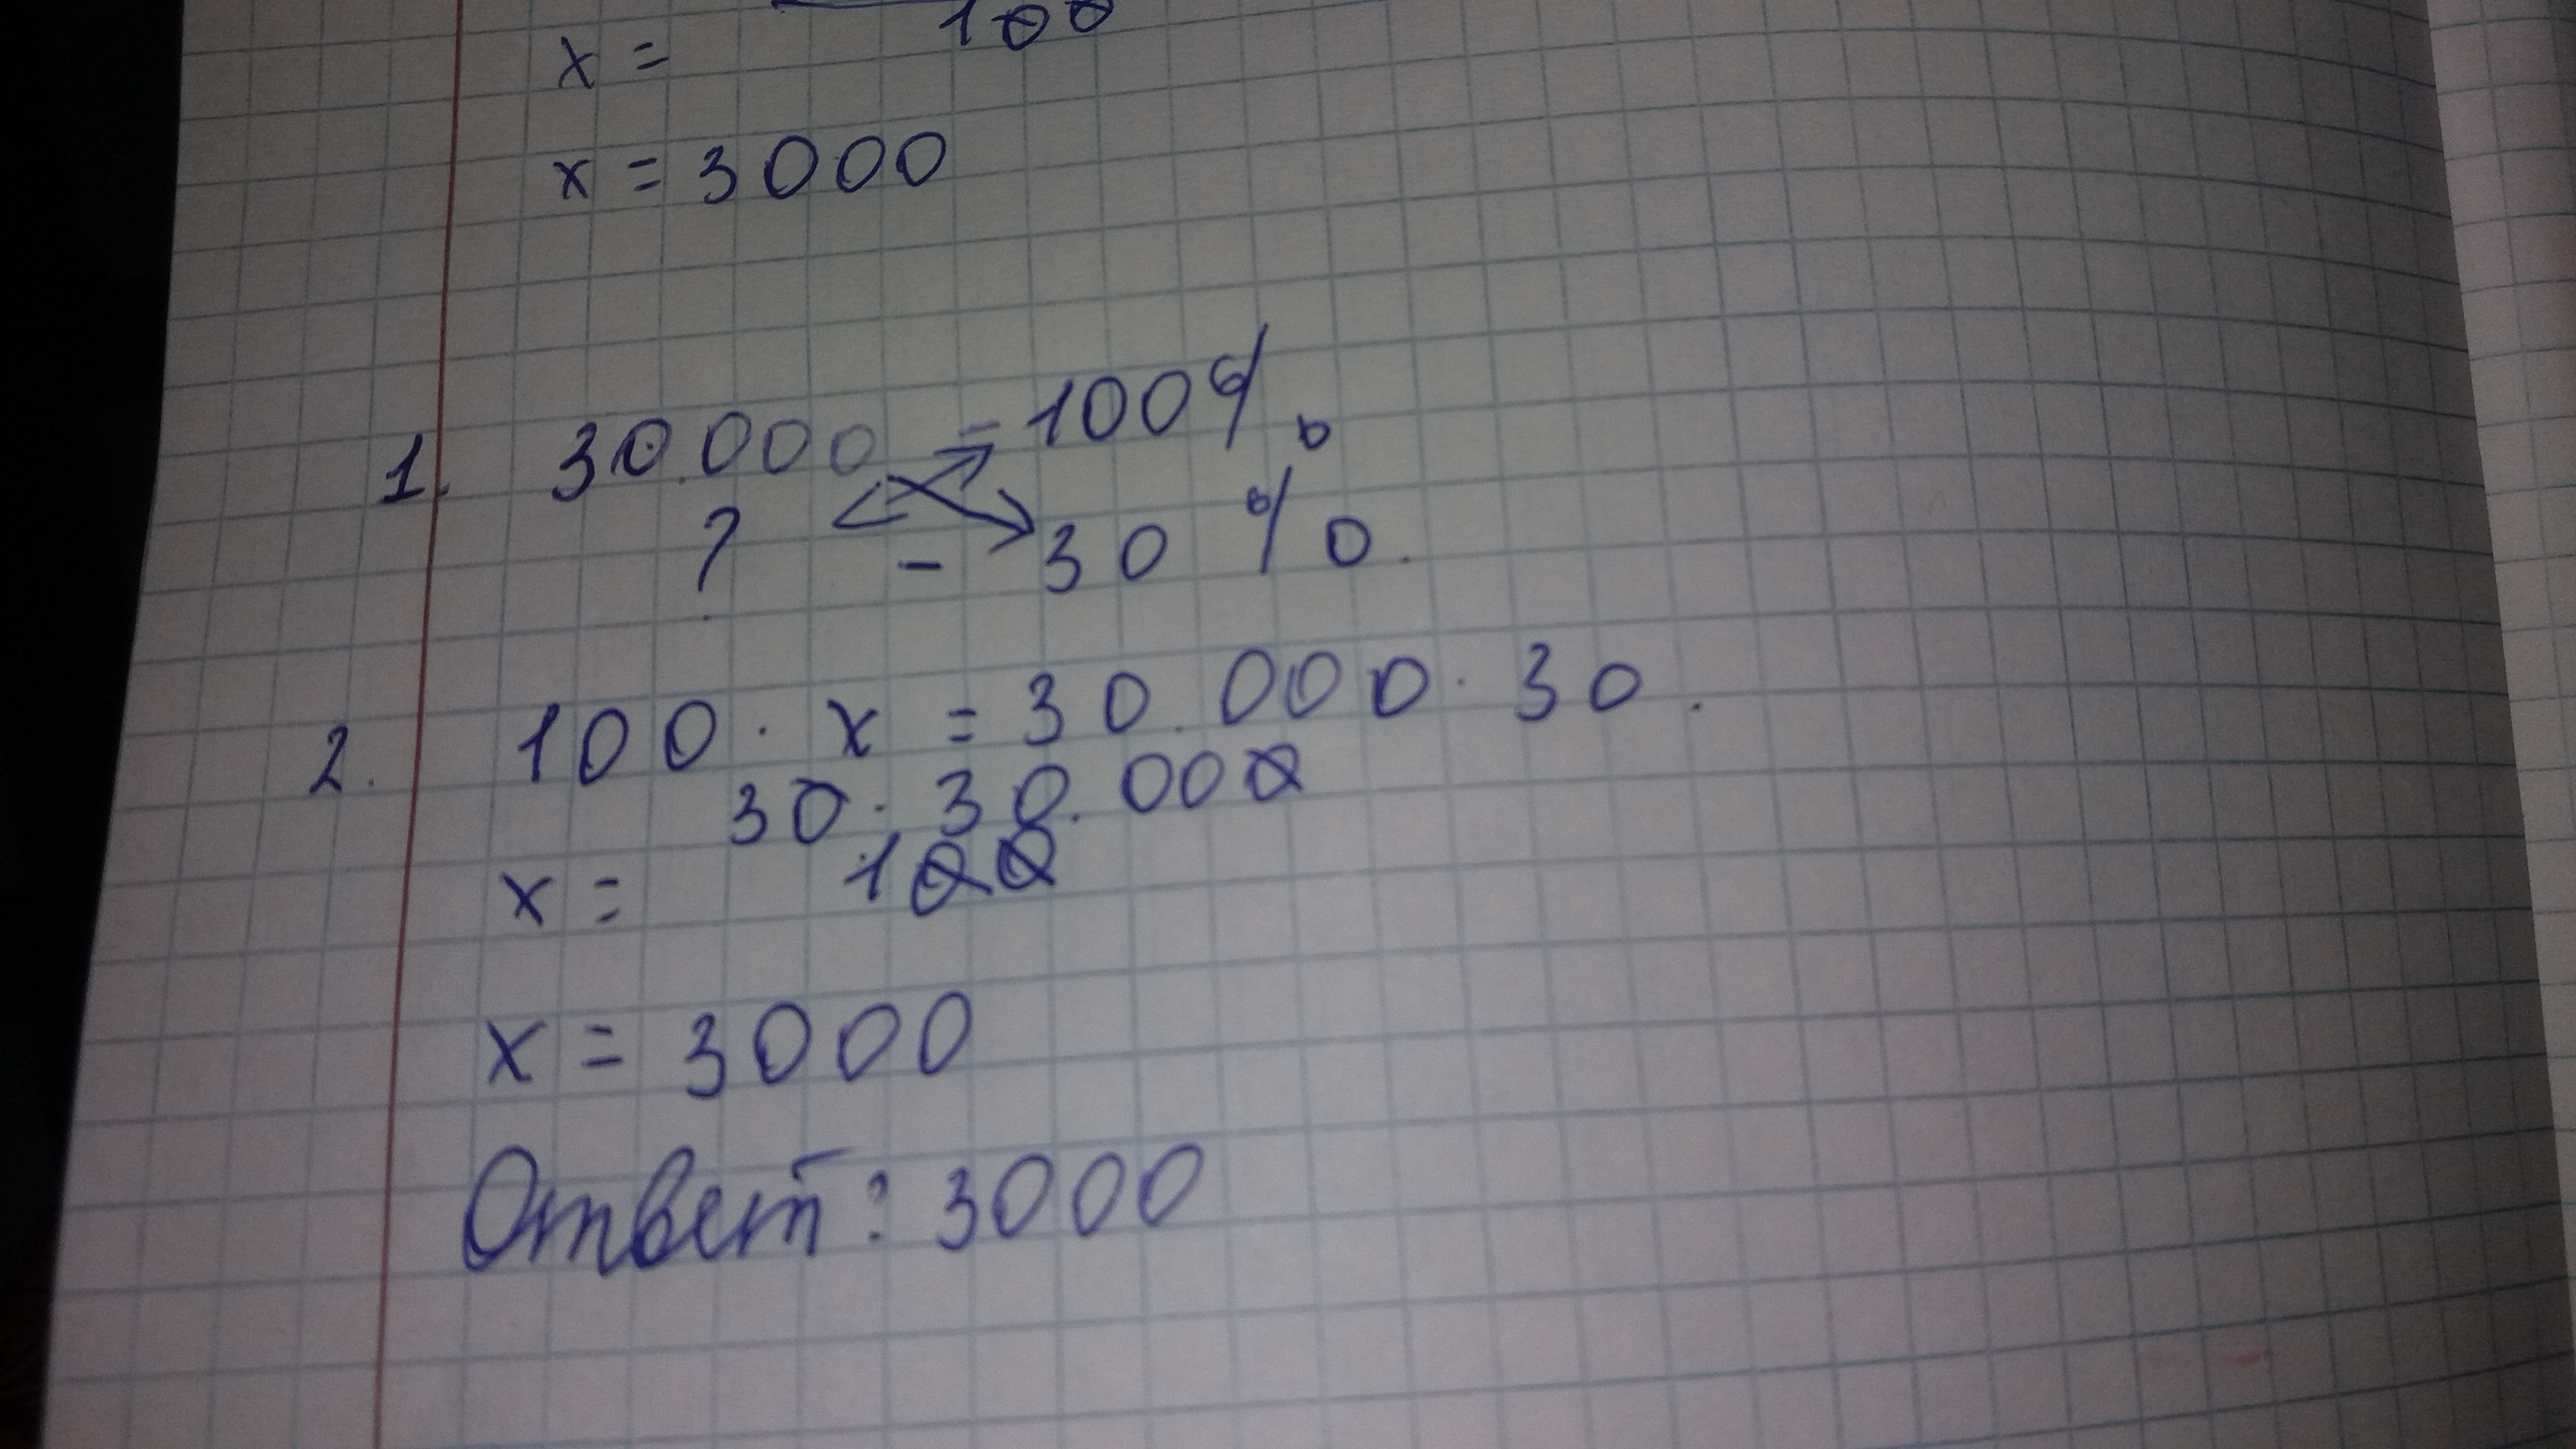 x = 100
x = 3000
1. 30.000 - 100%
? - 30 %.
2. 100 · x = 30.000 · 30.
x = 30 · 30.000
100
x = 3000
Ответ: 3000